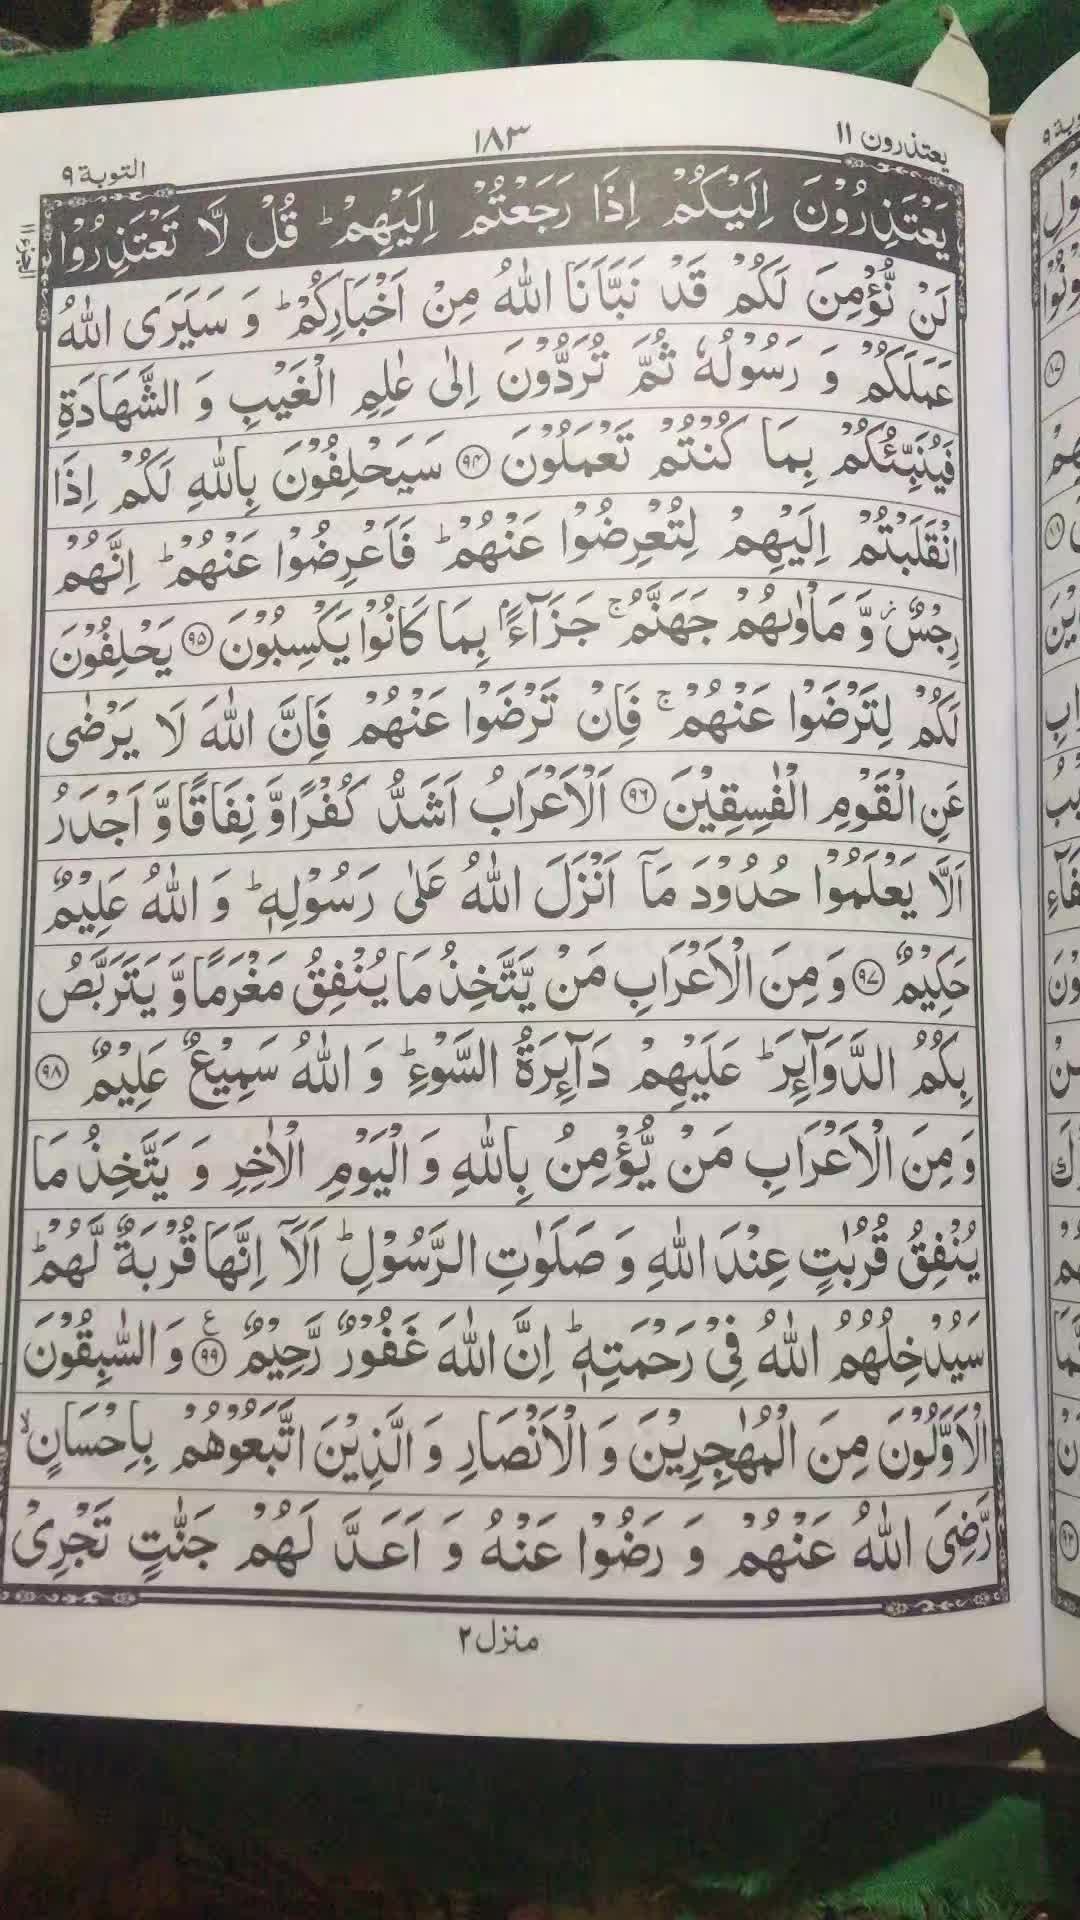 یعتذرون ١١
١٨٣
التوبة ٩
یَعْتَذِرُوْنَ اِلَیْكُمْ اِذَا رَجَعْتُمْ اِلَیْهِمْ ؕ قُلْ لَّا تَعْتَذِرُوْا
لَنْ نُّؤْمِنَ لَكُمْ قَدْ نَبَّاَنَا اللّٰهُ مِنْ اَخْبَارِكُمْ ؕ وَ سَیَرَی اللّٰهُ
عَمَلَكُمْ وَ رَسُوْلُهٗ ثُمَّ تُرَدُّوْنَ اِلٰی عٰلِمِ الْغَیْبِ وَ الشَّهَادَةِ
فَیُنَبِّئُكُمْ بِمَا كُنْتُمْ تَعْمَلُوْنَ ﴿۹۴﴾ سَیَحْلِفُوْنَ بِاللّٰهِ لَكُمْ اِذَا
انْقَلَبْتُمْ اِلَیْهِمْ لِتُعْرِضُوْا عَنْهُمْ ؕ فَاَعْرِضُوْا عَنْهُمْ ؕ اِنَّهُمْ
رِجْسٌ ۫ وَّ مَاْوٰىهُمْ جَهَنَّمُ ۚ جَزَآءًۢ بِمَا كَانُوْا یَكْسِبُوْنَ ﴿۹۵﴾ یَحْلِفُوْنَ
لَكُمْ لِتَرْضَوْا عَنْهُمْ ۚ فَاِنْ تَرْضَوْا عَنْهُمْ فَاِنَّ اللّٰهَ لَا یَرْضٰی
عَنِ الْقَوْمِ الْفٰسِقِیْنَ ﴿۹۶﴾ اَلْاَعْرَابُ اَشَدُّ كُفْرًا وَّ نِفَاقًا وَّ اَجْدَرُ
اَلَّا یَعْلَمُوْا حُدُوْدَ مَاۤ اَنْزَلَ اللّٰهُ عَلٰی رَسُوْلِهٖ ؕ وَ اللّٰهُ عَلِیْمٌ
حَكِیْمٌ ﴿۹۷﴾ وَ مِنَ الْاَعْرَابِ مَنْ یَّتَّخِذُ مَا یُنْفِقُ مَغْرَمًا وَّ یَتَرَبَّصُ
بِكُمُ الدَّوَآئِرَ ؕ عَلَیْهِمْ دَآئِرَةُ السَّوْءِ ؕ وَ اللّٰهُ سَمِیْعٌ عَلِیْمٌ ﴿۹۸﴾
وَ مِنَ الْاَعْرَابِ مَنْ یُّؤْمِنُ بِاللّٰهِ وَ الْیَوْمِ الْاٰخِرِ وَ یَتَّخِذُ مَا
یُنْفِقُ قُرُبٰتٍ عِنْدَ اللّٰهِ وَ صَلَوٰتِ الرَّسُوْلِ ؕ اَلَاۤ اِنَّهَا قُرْبَةٌ لَّهُمْ ؕ
سَیُدْخِلُهُمُ اللّٰهُ فِیْ رَحْمَتِهٖ ؕ اِنَّ اللّٰهَ غَفُوْرٌ رَّحِیْمٌ ﴿۹۹﴾ ع وَ السّٰبِقُوْنَ
الْاَوَّلُوْنَ مِنَ الْمُهٰجِرِیْنَ وَ الْاَنْصَارِ وَ الَّذِیْنَ اتَّبَعُوْهُمْ بِاِحْسَانٍ ۙ
رَّضِیَ اللّٰهُ عَنْهُمْ وَ رَضُوْا عَنْهُ وَ اَعَدَّ لَهُمْ جَنّٰتٍ تَجْرِیْ
منزل ٢